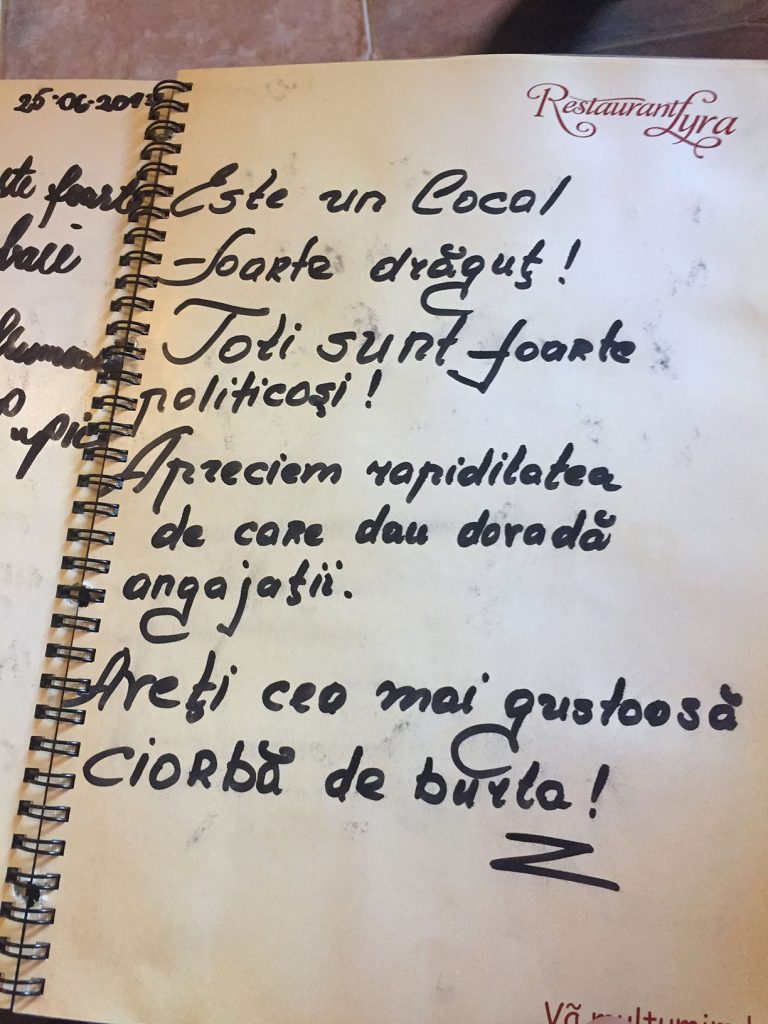 25.06.201
Restaurant Lyra
foarte
Este un local
foarte drăguț!
Toti sunt foarte
politicoși!
Apreciem rapiditatea
de care dau dovadă
angajații.
Aveți cea mai gustoosă
ciorbă de burta!
Vă mulțumim